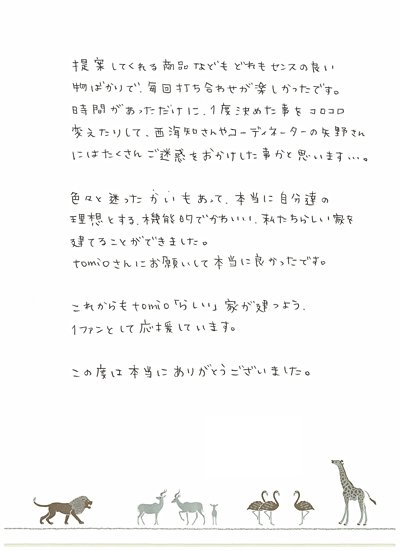 提案してくれる商品などもどれもセンスの良い
物ばかりで、毎回打ち合わせが楽しかったです。
時間があっただけに、1度決めた事をコロコロ
変えたりして、西海知さんやコーディネーターの矢野さん
にはたくさんご迷惑をおかけした事かと思います…。
色々と迷ったかいもあって、本当に自分達の
理想とする、機能的でかわいい、私たちらしい家を
建てることができました。
tomioさんにお願いして本当に良かったです。
これからもtomio「らしい」家が建つよう、
1ファンとして応援しています。
この度は本当にありがとうございました。